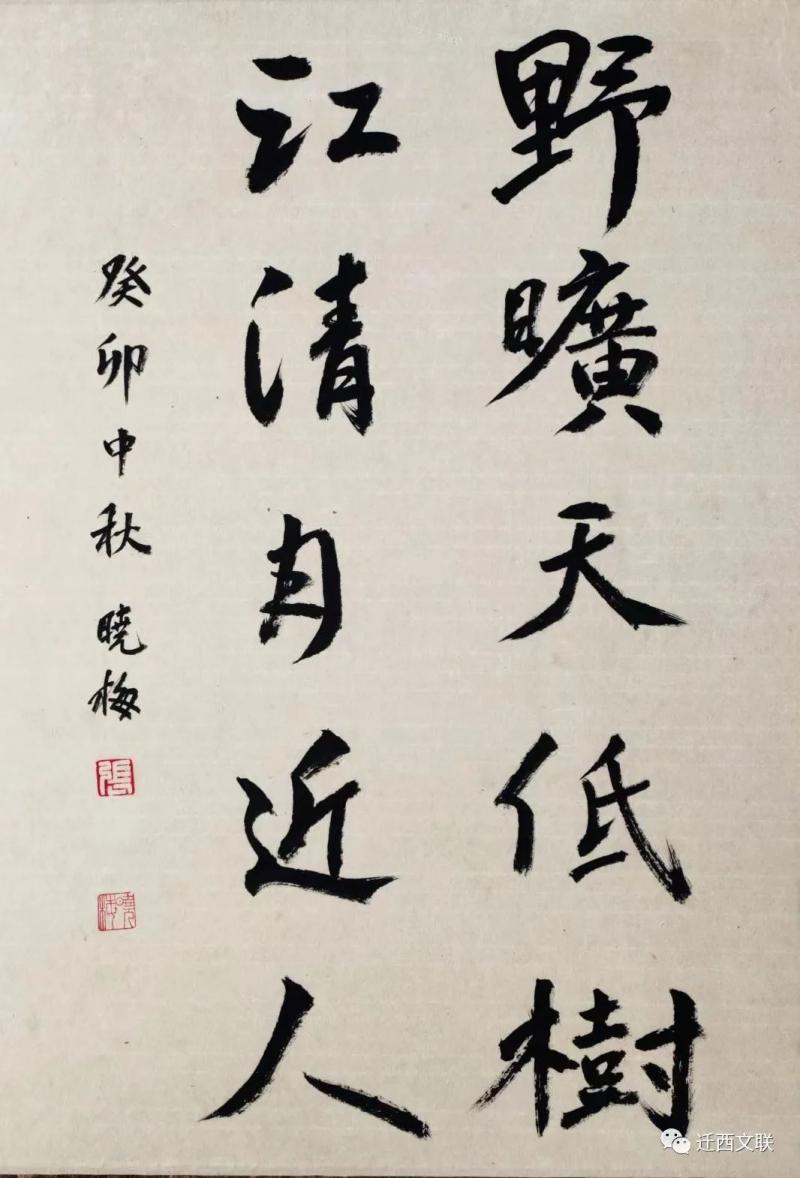 野曠天低樹
江清月近人
癸卯中秋 曉梅
張
曉梅
迁西文联